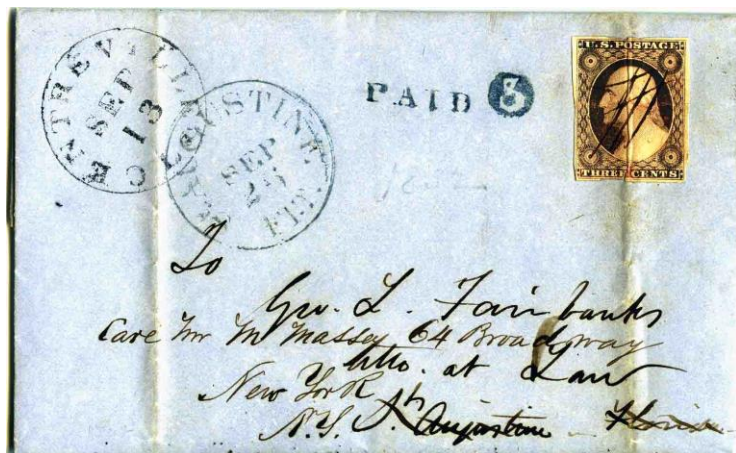 CENTREVILLE
SEP
13
ST. AUGUSTINE
FLT.
SEP
25
PAID 3
U.S. POSTAGE
THREE CENTS
To
Geo. L. Fairbanks
Care Wm M Massey 64 Broadway
Atto. at Law
New York
N.Y. St Augustine Florida